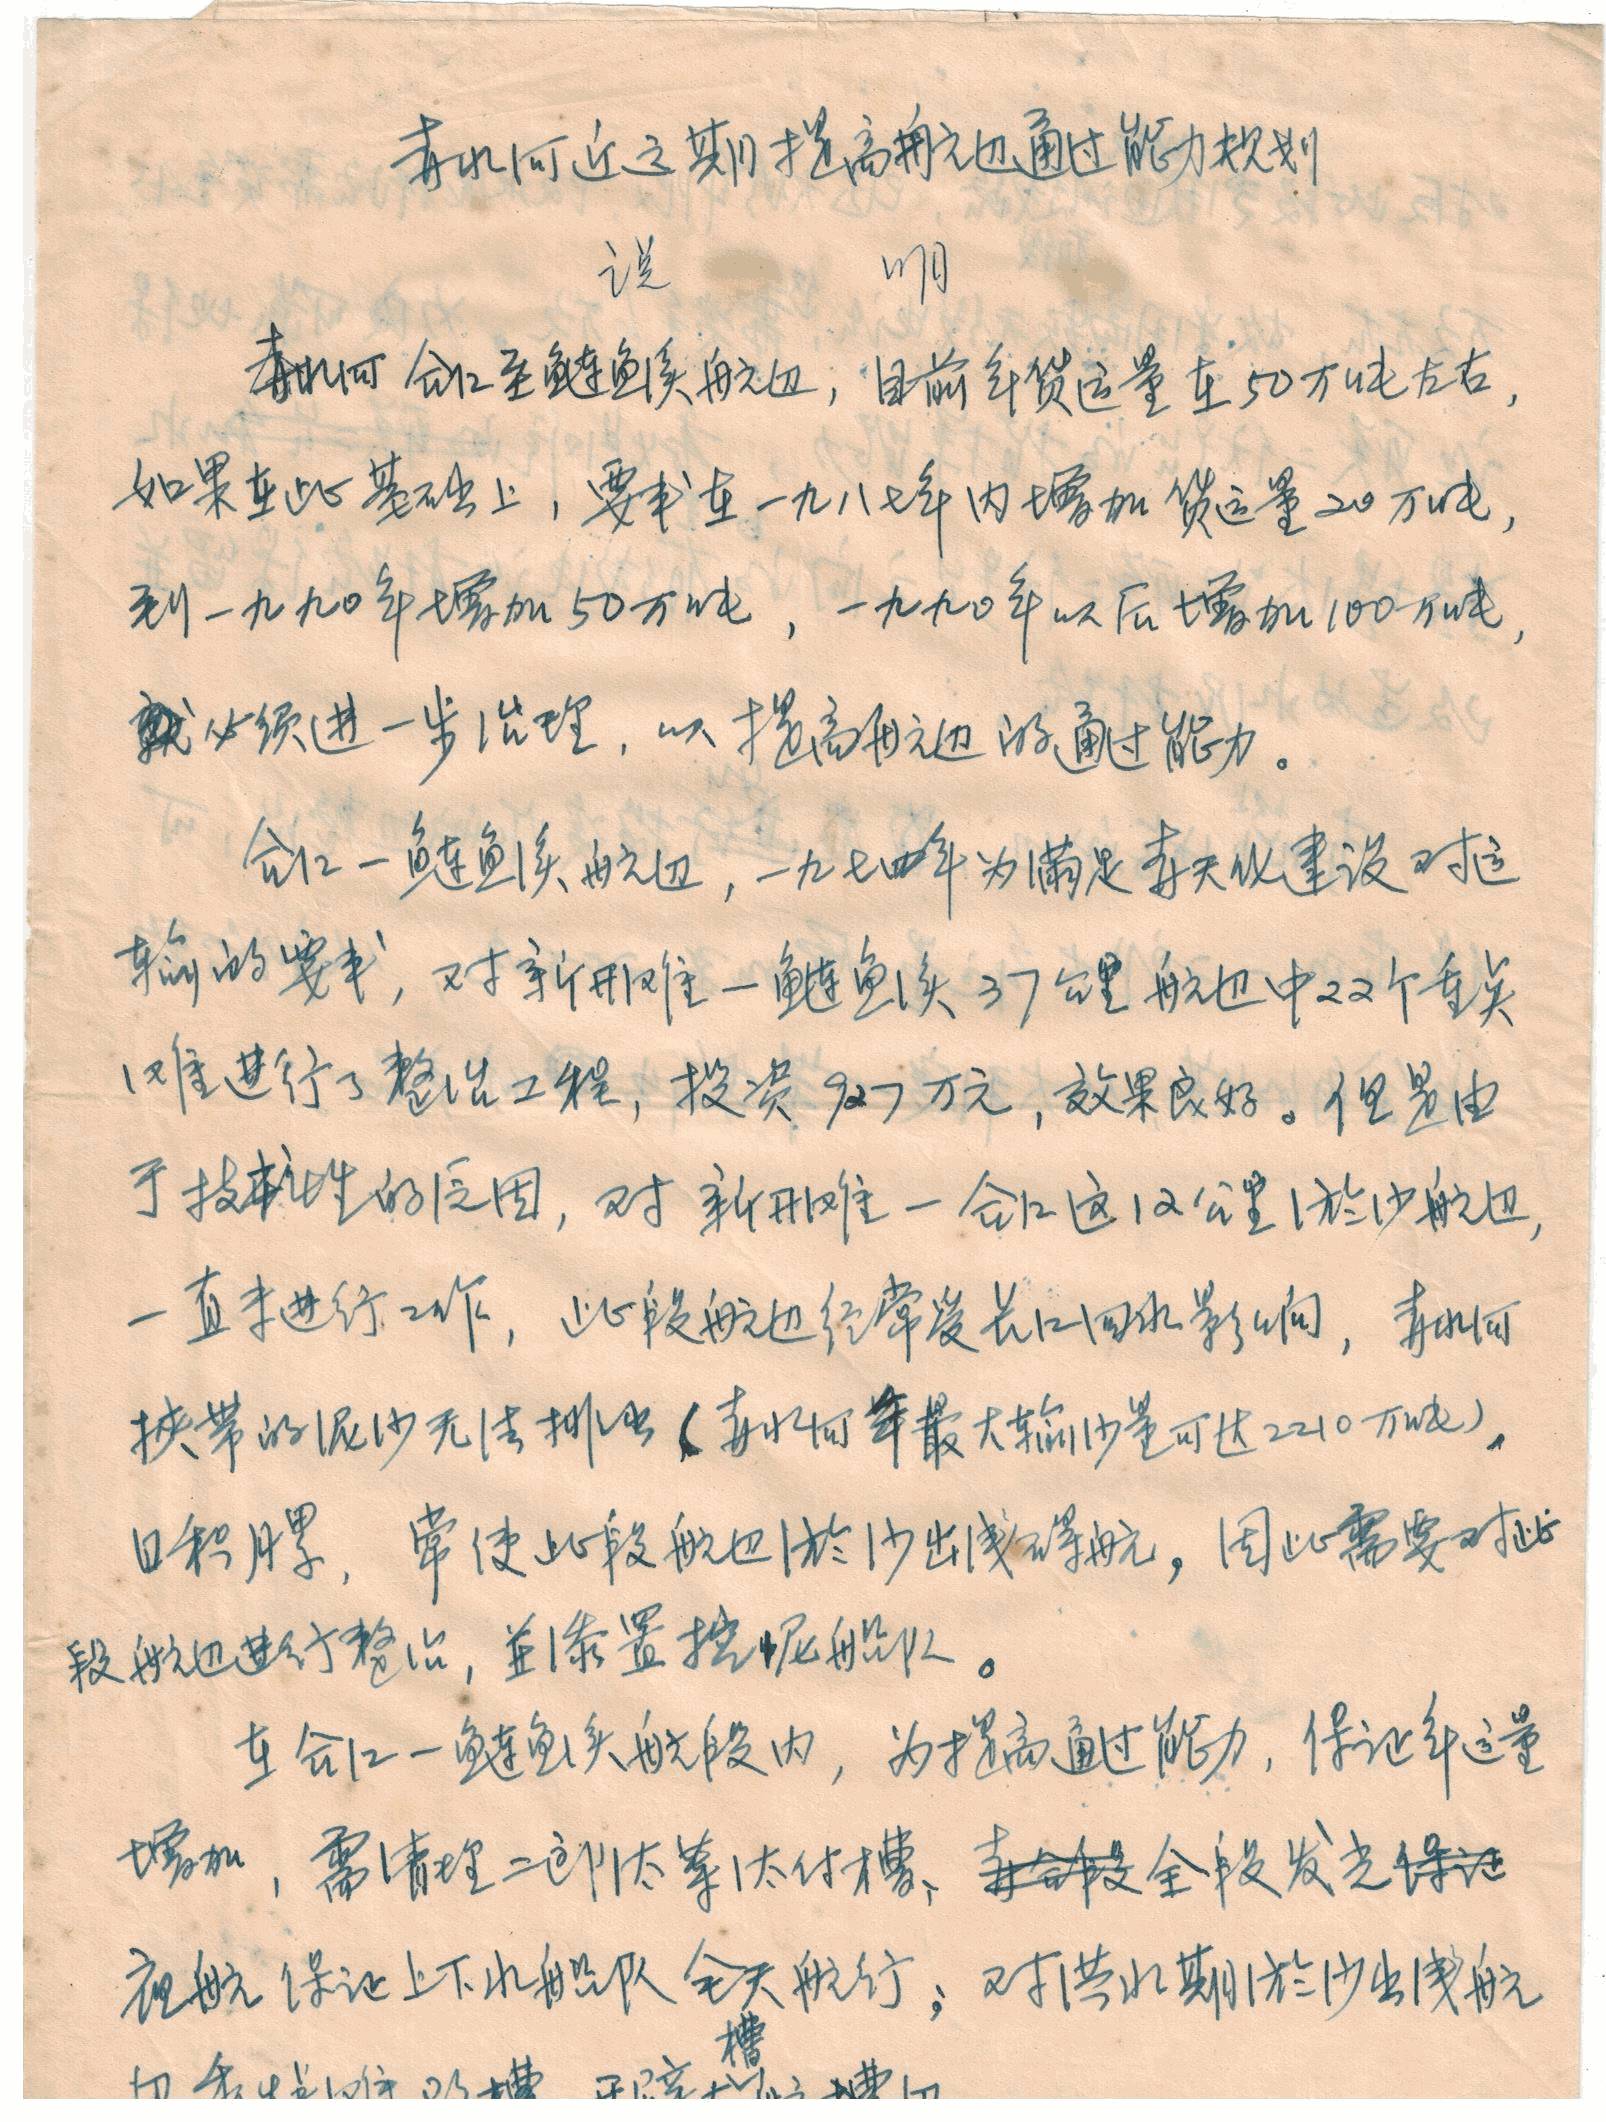 赤水河近远期提高航道通过能力规划
说 明
赤水河合江至鲢鱼溪航道，目前年货运量在50万吨左右，
如果在此基础上，要求在一九八七年内增加货运量20万吨，
到一九九〇年增加50万吨，一九九〇年以后增加100万吨，
就必须进一步治理，以提高航道的通过能力。
合江—鲢鱼溪航道，一九七四年为满足赤天化建设对运
输的要求，对新开滩—鲢鱼溪37公里航道中22个重点
滩进行了整治工程，投资927万元，效果良好。但是由
于技术性的原因，对新开滩—合江这12公里淤沙航道，
一直未进行工作，此段航道经常受长江回水影响，赤水河
挟带的泥沙无法排出（赤水河年最大输沙量可达2210万吨）。
日积月累，常使此段航道淤沙出浅碍航，因此需要对此
段航道进行整治，并添置挖泥船队。
在合江—鲢鱼溪航段内，为提高通过能力，保证年运量
增加，需清理二郎沱等沱付槽、全段发光
夜航保证上下水船队全天航行；对洪水期淤沙出浅航
槽